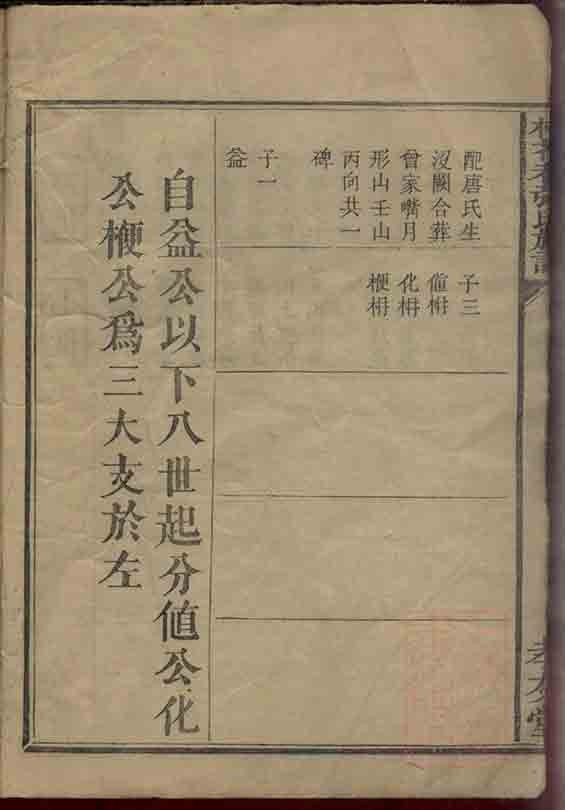 孝友堂
配唐氏生
沒闕合葬
曾家嘴月
形山壬山
丙向共一
碑
子一
益
子三
値
化
楩
自益公以下八世起分値公化
公楩公爲三大支於左